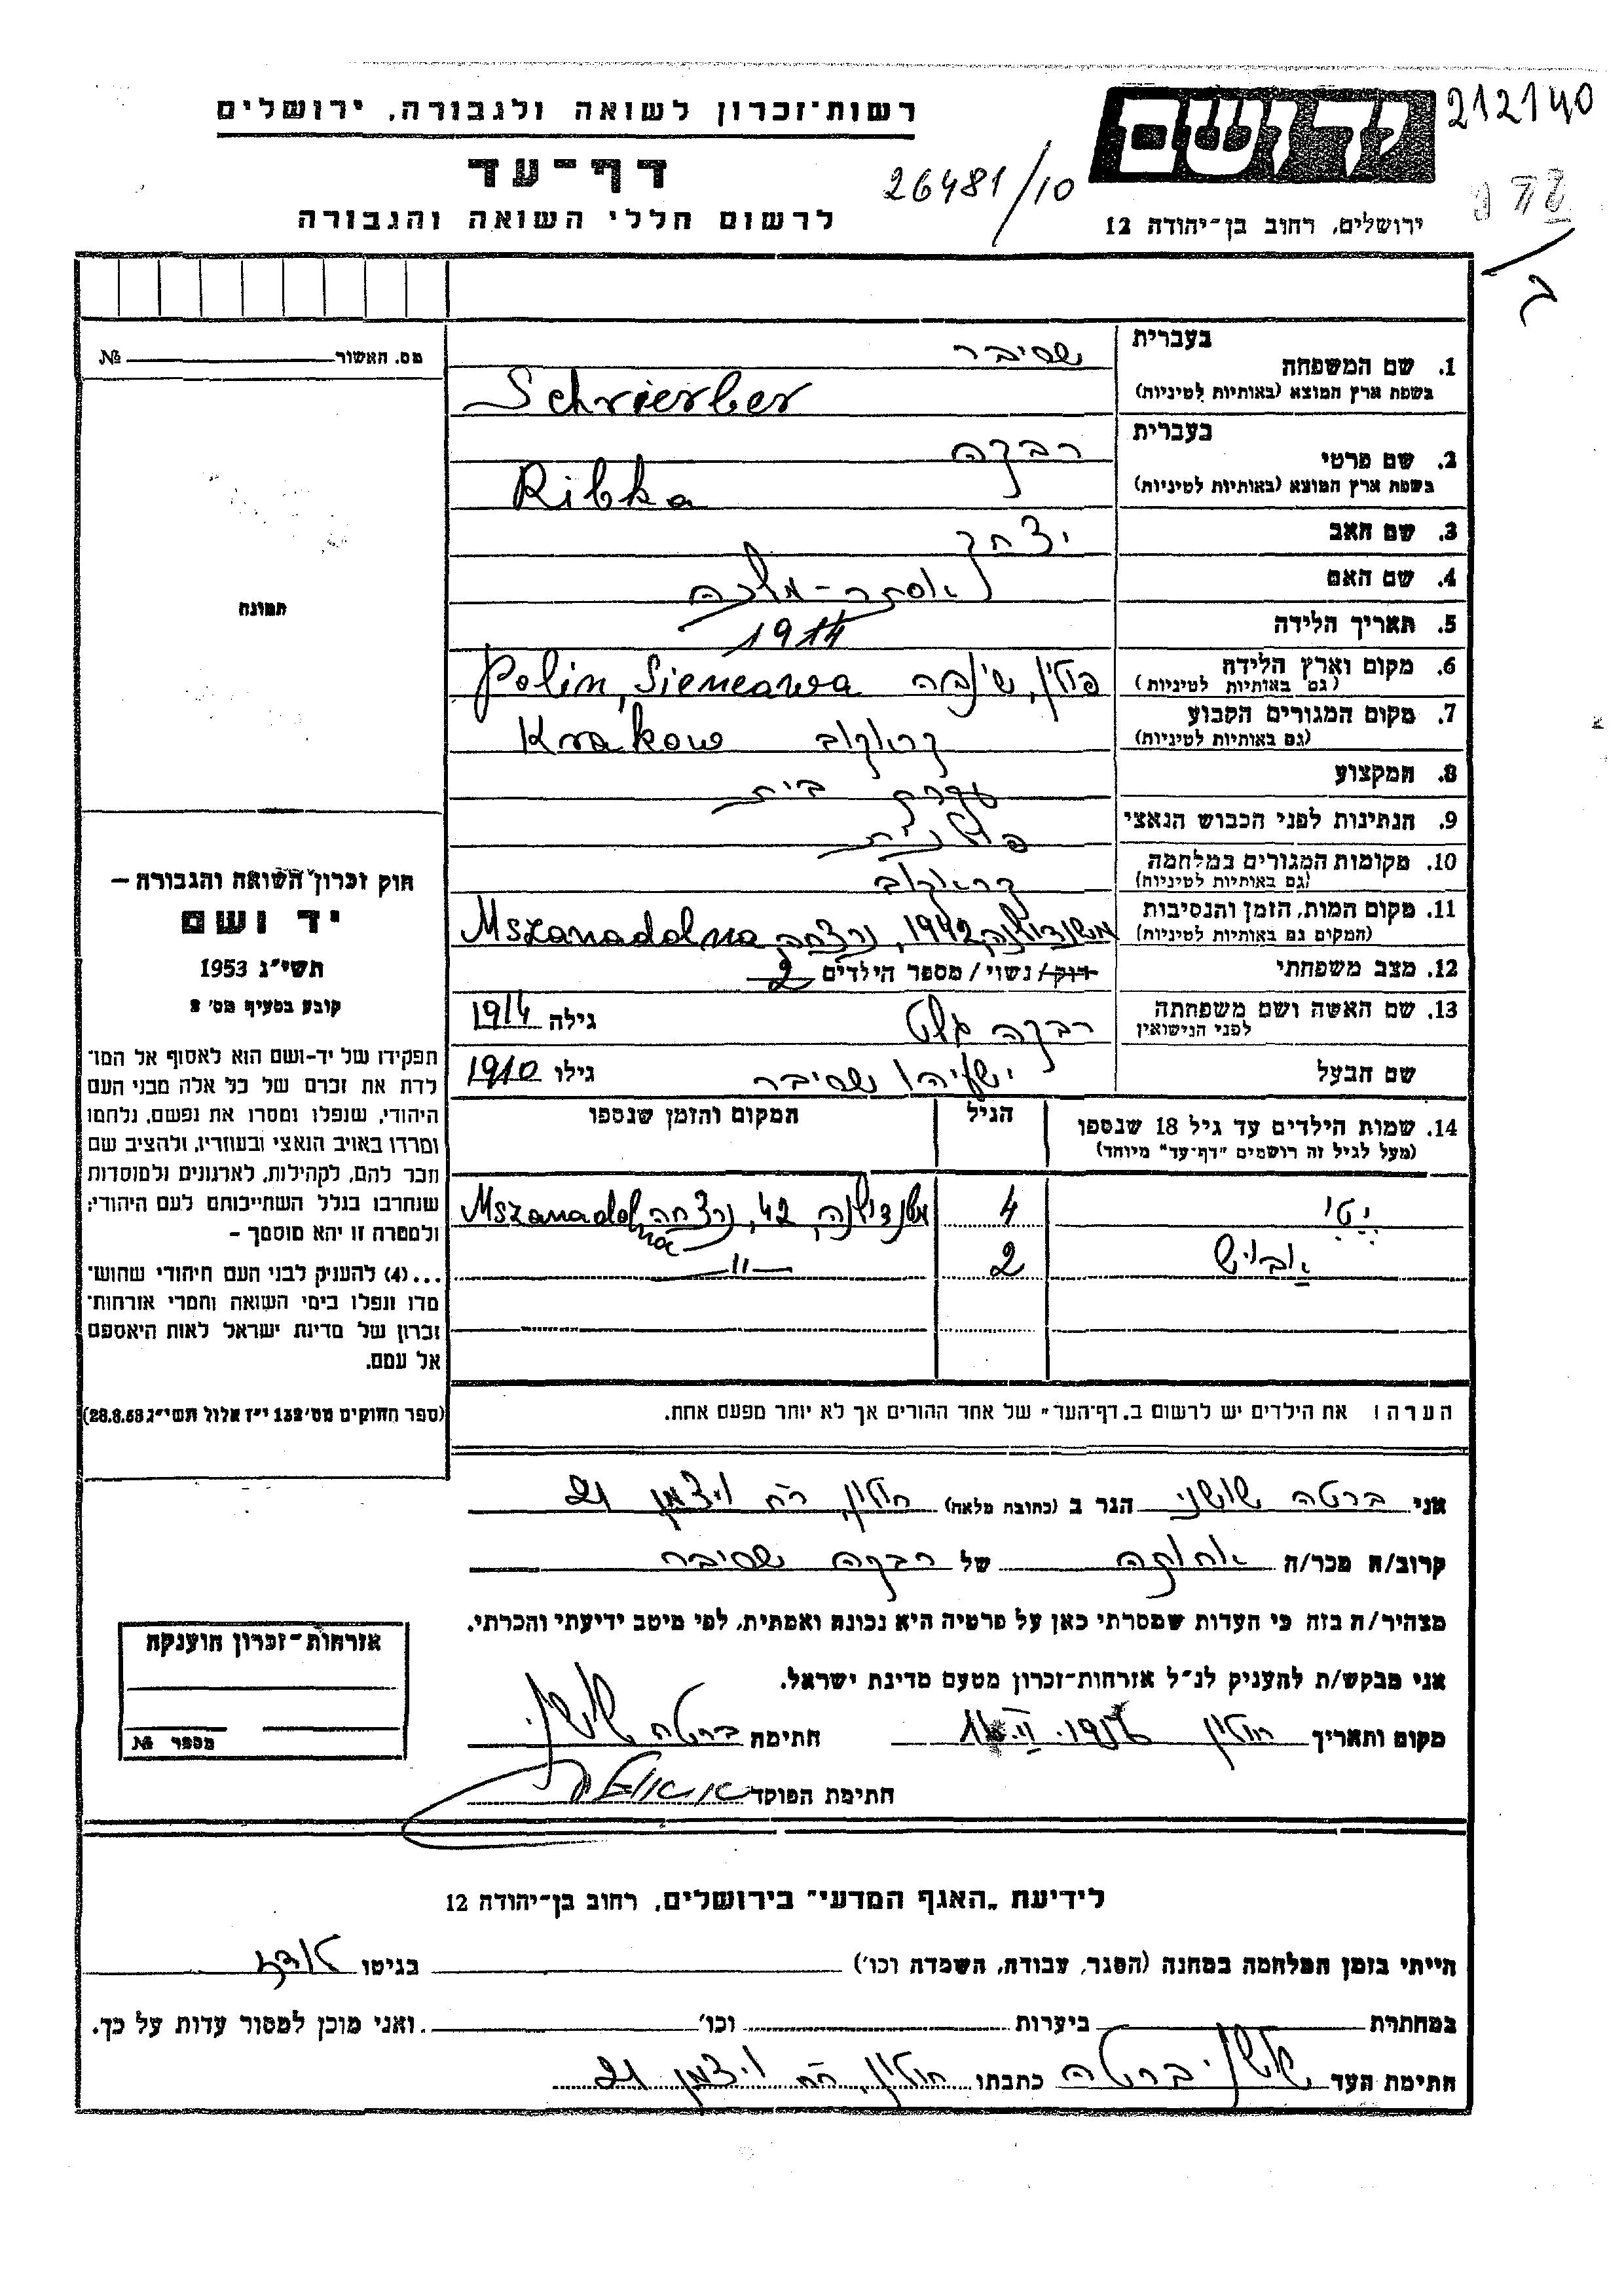 212140
ידושם
רשות־זכרון לשואה ולגבורה, ירושלים
דף־עד
26481/10
לרשום חללי השואה והגבורה
ירושלים, רחוב בן־יהודה 12
ב
מס. האשור № 
תמונה
1. שם המשפחה
בעברית
בשפת ארץ המוצא (באותיות לטיניות)
Schrierber
2. שם פרטי
בעברית רבקה
בשפת ארץ המוצא (באותיות לטיניות) Ribka
3. שם האב יצחק
4. שם האם אסתר-מלכה
5. תאריך הלידה 1914
6. מקום וארץ הלידה (גם באותיות לטיניות) פולין, שינבה Polin, Sieneawa
7. מקום המגורים הקבוע (גם באותיות לטיניות) קראקוב Krakow
8. המקצוע עקרת בית
9. הנתינות לפני הכבוש הנאצי פולנית
10. מקומות המגורים במלחמה (גם באותיות לטיניות) קראקוב
11. מקום המות, הזמן והנסיבות (המקום גם באותיות לטיניות) 1942, נרצחה Mszanadolna
12. מצב משפחתי רוק/נשוי/מספר הילדים 2
13. שם האשה ושם משפחתה לפני הנישואין רבקה גילה 1914
שם הבעל ישעיהו גילו 1910
14. שמות הילדים עד גיל 18 שנספו
(מעל לגיל זה רושמים "דף־עד" מיוחד)
הגיל
המקום והזמן שנספו
יטי 4 42, נרצחה Mszanadolna
2 —״—
הערה: את הילדים יש לרשום ב„דף־העד" של אחד ההורים אך לא יותר מפעם אחת.
חוק זכרון השואה והגבורה –
יד ושם
תשי״ג 1953
קובע בסעיף מס׳ 2
תפקידו של יד־ושם הוא לאסוף אל המו־
לדת את זכרם של כל אלה מבני העם
היהודי, שנפלו ומסרו את נפשם, נלחמו
ומרדו באויב הנאצי ובעוזריו, ולהציב שם
וזכר להם, לקהילות, לארגונים ולמוסדות
שנחרבו בגלל השתייכותם לעם היהודי;
ולמטרה זו יהא מוסמך –
...(4) להעניק לבני העם היהודי שהוש־
מדו ונפלו בימי השואה והמרי אזרחות־
זכרון של מדינת ישראל לאות היאספם
אל עמם.
(ספר החוקים מס׳ 132 י״ז אלול תשי״ג 28.8.53)
אני ברטה שושני הגר ב (כתובת מלאה) חולון, רח ויצמן 21
קרוב/ה מכר/ה של רבקה
מצהיר/ה בזה כי העדות שמסרתי כאן על פרטיה היא נכונה ואמתית, לפי מיטב ידיעתי והכרתי.
אני מבקש/ת להעניק לנ״ל אזרחות־זכרון מטעם מדינת ישראל.
מקום ותאריך חולון חתימה ברטה שושני
חתימת הפוקד
אזרחות־זכרון הוענקה
מספר №
לידיעת „האגף המדעי" בירושלים, רחוב בן־יהודה 12
הייתי בזמן המלחמה במחנה (הסגר, עבודה, השמדה וכו׳) בגיטו
במחתרת ביערות וכו׳ ואני מוכן למסור עדות על כך.
חתימת העד שושני ברטה כתבתו חולון, רח ויצמן 21